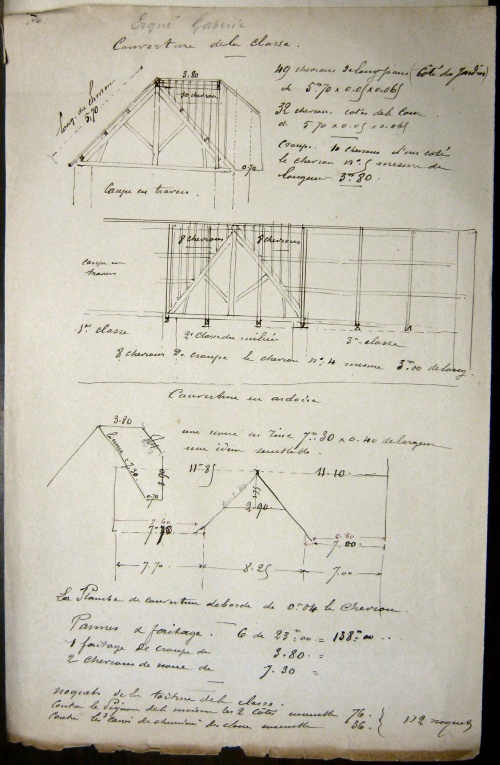 Ergué Gaberic
Couverture de la classe.
3.80
long. du chevron
5.70
10 chevrons
0.70
Coupe en travers.
49 chevrons de longs pans (Côté du Jardin)
de 5m70 x 0.05 x 0.065
32 chevrons côté de la Cour
de 5.70 x 0.05 x 0.065
Croupe. 10 chevrons d'un coté
le chevron n°. 5 mesure de
longueur 3m.80.
8 chevrons 8 chevrons
coupe en
travers
1re classe
2e Classe du milieu
3me classe
8 chevrons de croupe le chevron n°. 4 mesure 3m.00 de long.
Couverture en ardoise
3.80
7.30
0.70
une noue en Zinc 7m.30 x 0.40 de largeur
une idem semblable.
11.85
11.10
2.90
7.70
7.00
7.70
8.25
7.00
La Planche de couverture deborde de 0m.04 le Chevron.
Pannes & faitage. 6 de 23m.00 = 138m.00
1 faitage de croupe de 3.80 =
2 chevrons de noue de 7.30 =
noquets de la toiture de la classe.
Contre le Pignon de la maison les 2 côtés ensemble 76.
Contre les de cheminée des classe ensemble 36.
112 noquets